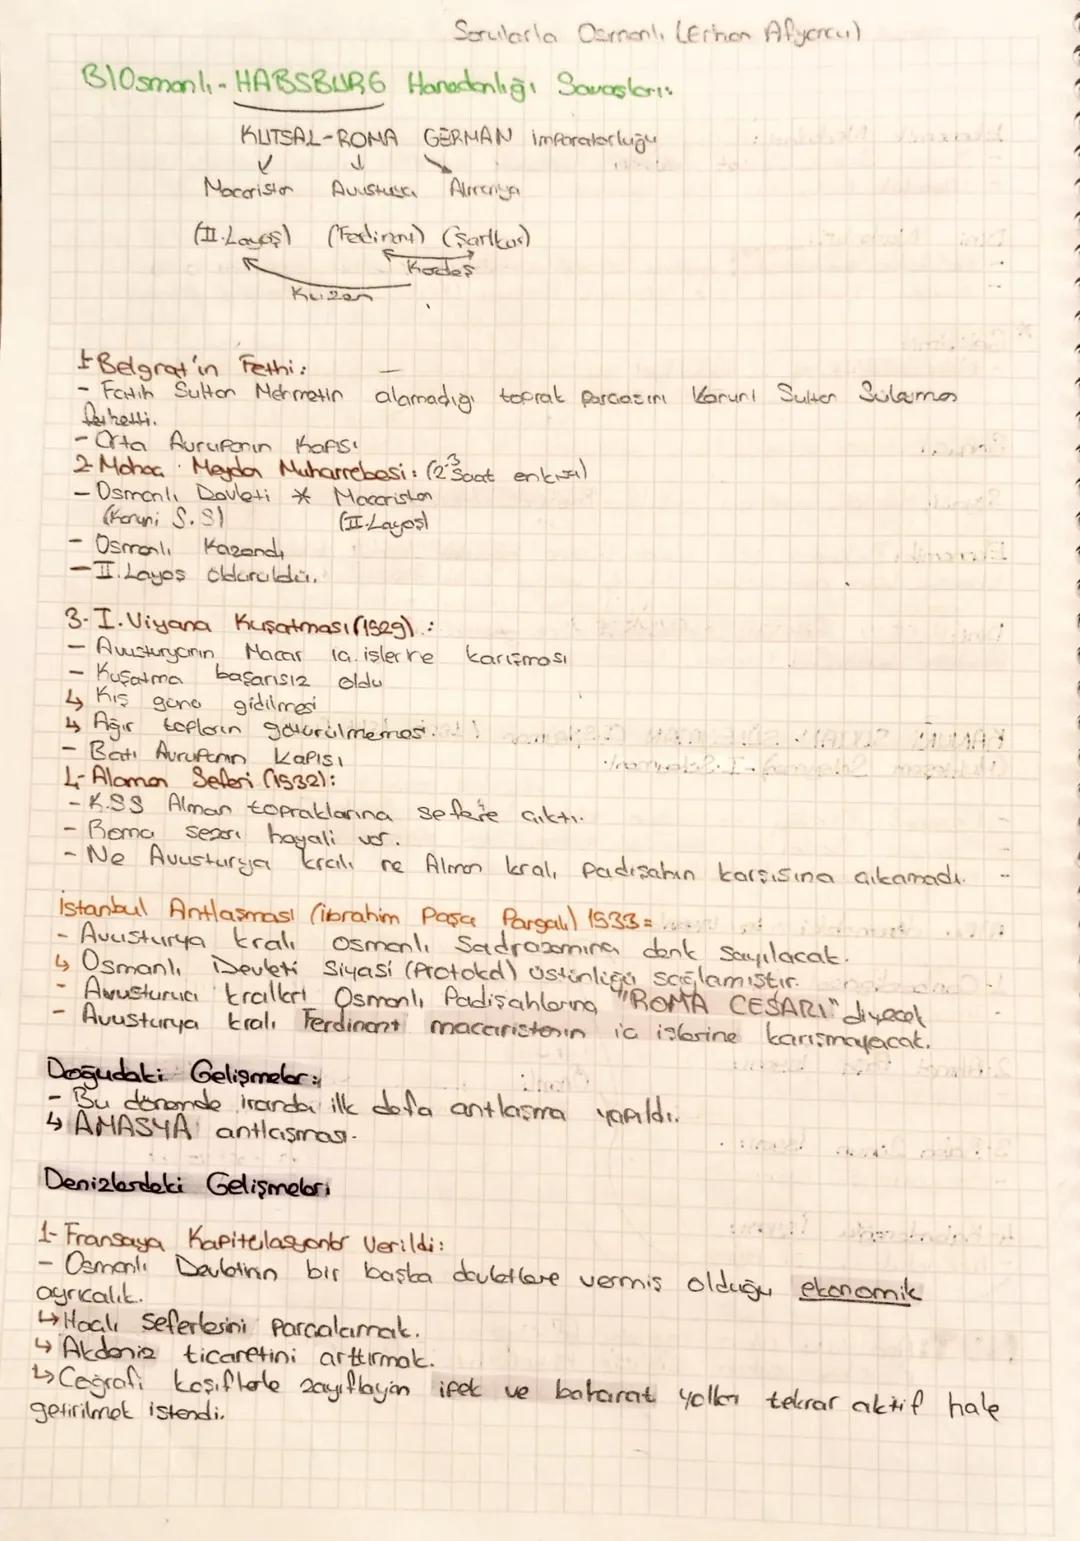 Sorularla Osmanlı (Erhan Afyoncu)
B) Osmanlı - HABSBURG Hanedanlığı Savaşları:
KUTSAL-ROMA GERMAN imparatorluğu
Macaristan Avusturya Almanya
(II. Layoş) (Ferdinant) (Şarlken)
Kardeş
Kuzen
1- Belgrat'ın Fethi:
- Fatih Sultan Mehmetin alamadığı toprak parçasını Kanuni Sultan Süleyman
fethetti.
- Orta Avrupanın kapısı
2- Mohaç Meydan Muharrebesi: (2-3 saat en kısa)
- Osmanlı Devleti * Macaristan
(Kanuni S.S) (II. Layoş)
- Osmanlı Kazandı
- II. Layoş öldürüldü.
3- I. Viyana Kuşatması (1529):
- Avusturyanın Macar iç işlerine karışması
- Kuşatma başarısız oldu
↳ Kış günü gidilmesi
↳ Ağır topların götürülmemesi.
- Batı Avrupanın kapısı
4- Alaman Seferi (1532):
- K.S.S Alman topraklarına sefere çıktı.
- Roma sezarı hayali var.
- Ne Avusturya kralı ne Alman kralı padişahın karşısına çıkamadı.
İstanbul Antlaşması (ibrahim Paşa Pargalı) 1533=
- Avusturya kralı osmanlı Sadrazamına denk sayılacak.
↳ Osmanlı Devleti Siyasi (Protokol) üstünlüğü sağlamıştır.
- Avusturya kralları Osmanlı Padişahlarına "ROMA CESARI" diyecek
- Avusturya kralı Ferdinant macaristanın iç işlerine karışmayacak.
Doğudaki Gelişmeler:
- Bu dönemde iranda ilk defa antlaşma yapıldı.
↳ AMASYA antlaşması.
Denizlerdeki Gelişmeler:
1- Fransaya Kapitülasyonlar Verildi:
- Osmanlı Devletinin bir başka devletlere vermiş olduğu ekonomik
ayrıcalık.
↳ Haçlı Seferlerini parçalamak.
↳ Akdeniz ticaretini arttırmak.
↳ Coğrafi keşiflerle zayıflayan ipek ve baharat yolları tekrar aktif hale
getirilmek istendi.